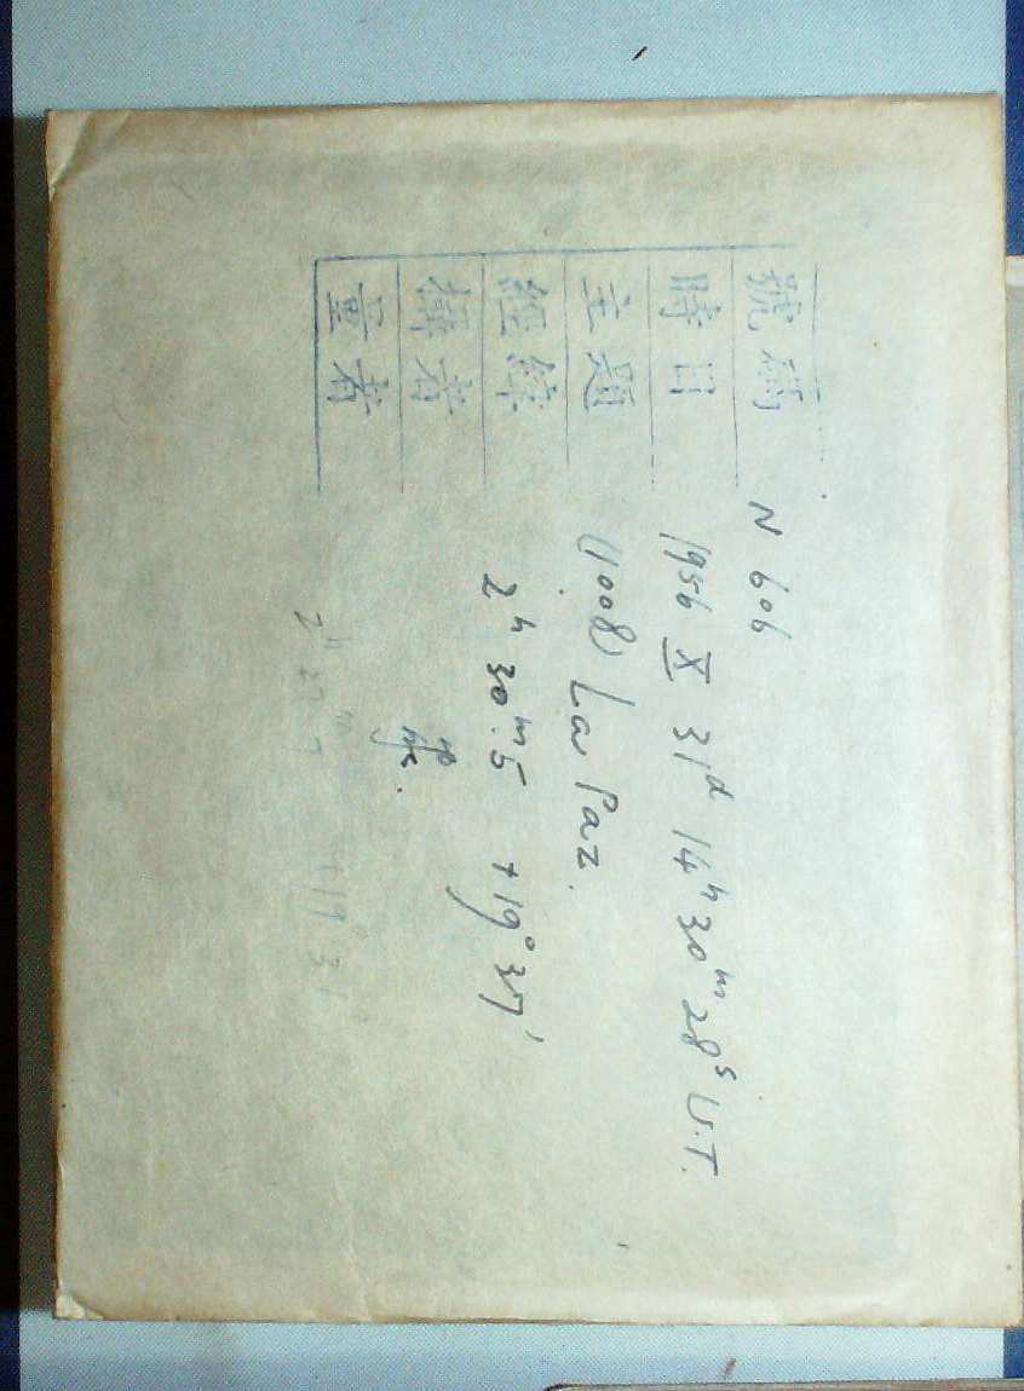 號碼 N 606
時日 1956 X 31ᵈ 14ʰ 30ᵐ 28ˢ U.T.
主題 (1008) La Paz.
經緯 2ʰ 30ᵐ.5 +19° 37'
攝者
量者